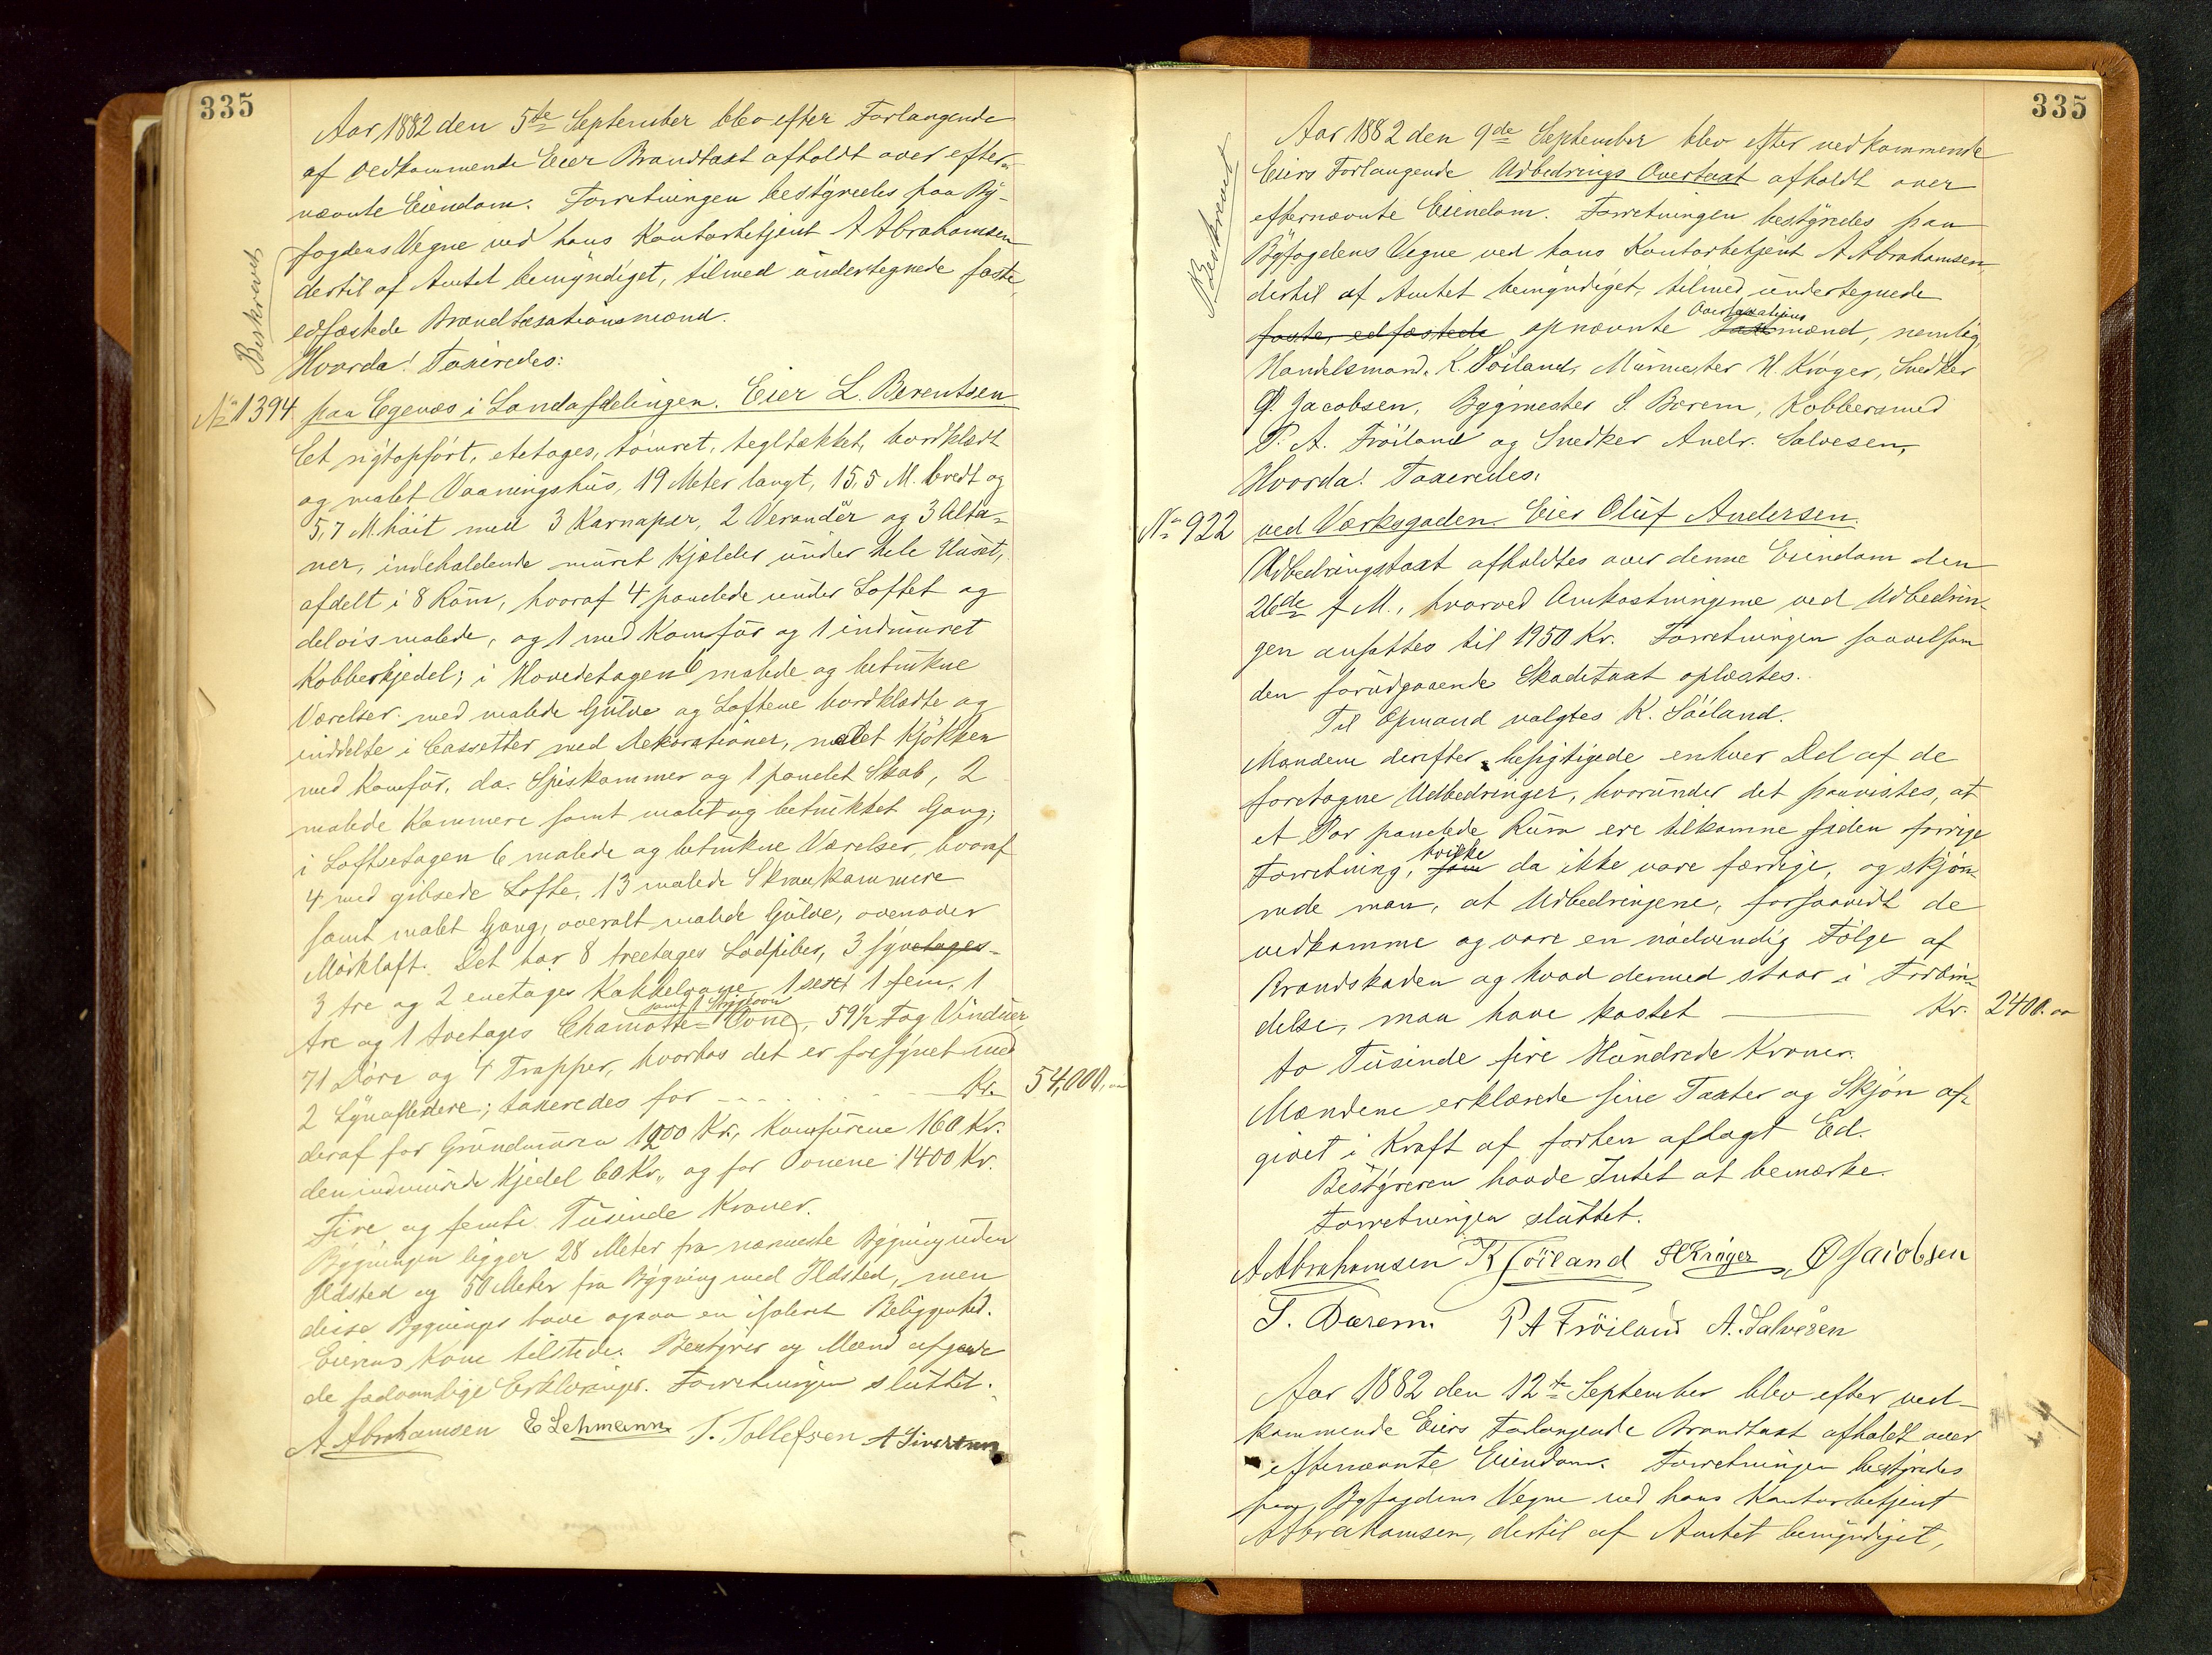 335
Aar 1882 den 5te September blev efter Forlangende
af vedkommende Eier Brandtaxt afholdt over efter-
nævnte Eiendom. Forretningen bestyredes paa By-
fogdens Vegne ved hans Kontorbetjent A Abrahamsen
dertil af Amtet bemyndiget, tilmed undertegnede faste,
edfæstede Brandtaxationsmænd.
Hvorda! Taxeredes:
Beskrevet
No 1394 paa Egenæs i Landafdelingen. Eier L. Berentsen
Et nýtopført, etetages, tømret, tegltækket, bordklædt
og malet Vaaningshus, 19 Meter langt, 15,5 M. bredt og
5,7 M. høit med 3 Karnaper, 2 Verandaer og 3 Alta-
ner, indeholdende muret Kjælder under hele Huset,
afdelt i 8 Rum, hvoraf 4 panelede under Loftet og
delvis malede, og 1 med Komfur og 1 indmuret
Kobberkjedel; i Hovedetagen 6 malede og betrukne
Værelser med malede Gulve og Loftene bordklædte og
inddelte i Cassetter med Dekorationer, malet Kjøkken
med Komfur, do. Spiskammer og 1 panelet Skab, 2
malede Kammere samt malet og betrukket Gang;
i Loftsetagen 6 malede og betrukne Værelser, hvoraf
4 med gibsede Lofte, 13 malede Skraakammere
samt malet Gang, overalt malede Gulve, ovenover
Mørkloft. Det har 8 treetages Lodpiber, 3 syvetages-
3 tre og 2 enetages Kakkelovne 1 sexet 1 fem, 1
samt 1 Strygeovn
tre og 1 toetages Chamotte-Ovne, 59½ Fag Vinduer
71 Døre og 4 Trapper, hvorhos det er forsynet med
2 Lynafledere; taxeredes for - - - - Kr. 54,000.00
deraf for Grundmuren 1200 Kr., Komfurene 160 Kr.
den indmurede Kjedel 60 Kr., og for Ovnene 1400 Kr.
Fire og femti Tusinde Kroner.
Bygningen ligger 28 Meter fra nærmeste Bygning uden
Ildsted og 50 Meter fra Bygning med Ildsted, men
disse Bygninger have ogsaa en isoleret Beliggenhed.
Eierens Kone tilstede. Bestyrer og Mænd afgave
de sædvanlige Erklæringer. Forretningen sluttet.
A Abrahamsen E Lehmann T. Tollefsen A Sivertsen
335
Aar 1882 den 9de September blev efter vedkommende
Eiers Forlangende Udbedrings Overtaxt afholdt over
efternævnte Eiendom. Forretningen bestyredes paa
Byfogdens Vegne ved hans Kontorbetjent A Abrahamsen,
dertil af Amtet bemyndiget, tilmed undertegnede
Overtaxations
faste, edfæstede opnævnte Taxtmænd, nemlig
Handelsmand K. Söiland, Murmester H. Krøger, Snedker
O. Jacobsen, Bygmester S. Barem, Kobbersmed
P. A. Fröiland og Snedker Andr. Salvesen,
Hvorda! Taxeredes:
Beskrevet
No 922 ved Værksgaden. Eier Oluf Andersen.
Udbedringstaxt afholdtes over denne Eiendom den
26de f M., hvorved Omkostningerne ved Udbedrin-
gen ansattes til 1950 Kr. Forretningen saavelsom
den forudgaaende Skadetaxt oplæstes.
Til Opmand valgtes K. Söiland.
Mændene derefter besigtigede enhver Del af de
foretagne Udbedringer, hvorunder det paavistes, at
et Par panelede Rum ere tilkomne siden forrige
hvilke
Forretning, som da ikke vare færdige, og skjøn-
nede man, at Udbedringerne, forsaavidt de
vedkomme og vare en nødvendig Følge af
Brandskaden og hvad dermed staar i Forbin-
delse, maa have kostet - Kr. 2400.00
to Tusinde fire Hundrede Kroner.
Mændene erklærede sine Taxter og Skjøn af-
givet i Kraft af forhen aflagt Ed.
Bestyreren havde Intet at bemærke.
Forretningen sluttet.
A Abrahamsen K Söiland H Krøger O Jacobsen
S. Barem. P A Fröiland A. Salvesen
Aar 1882 den 12te September blev efter ved-
kommende Eiers Forlangende Brandtaxt afholdt over
efternævnte Eiendom. Forretningen bestyredes
paa Byfogdens Vegne ved hans Kontorbetjent
A Abrahamsen, dertil af Amtet bemyndiget,